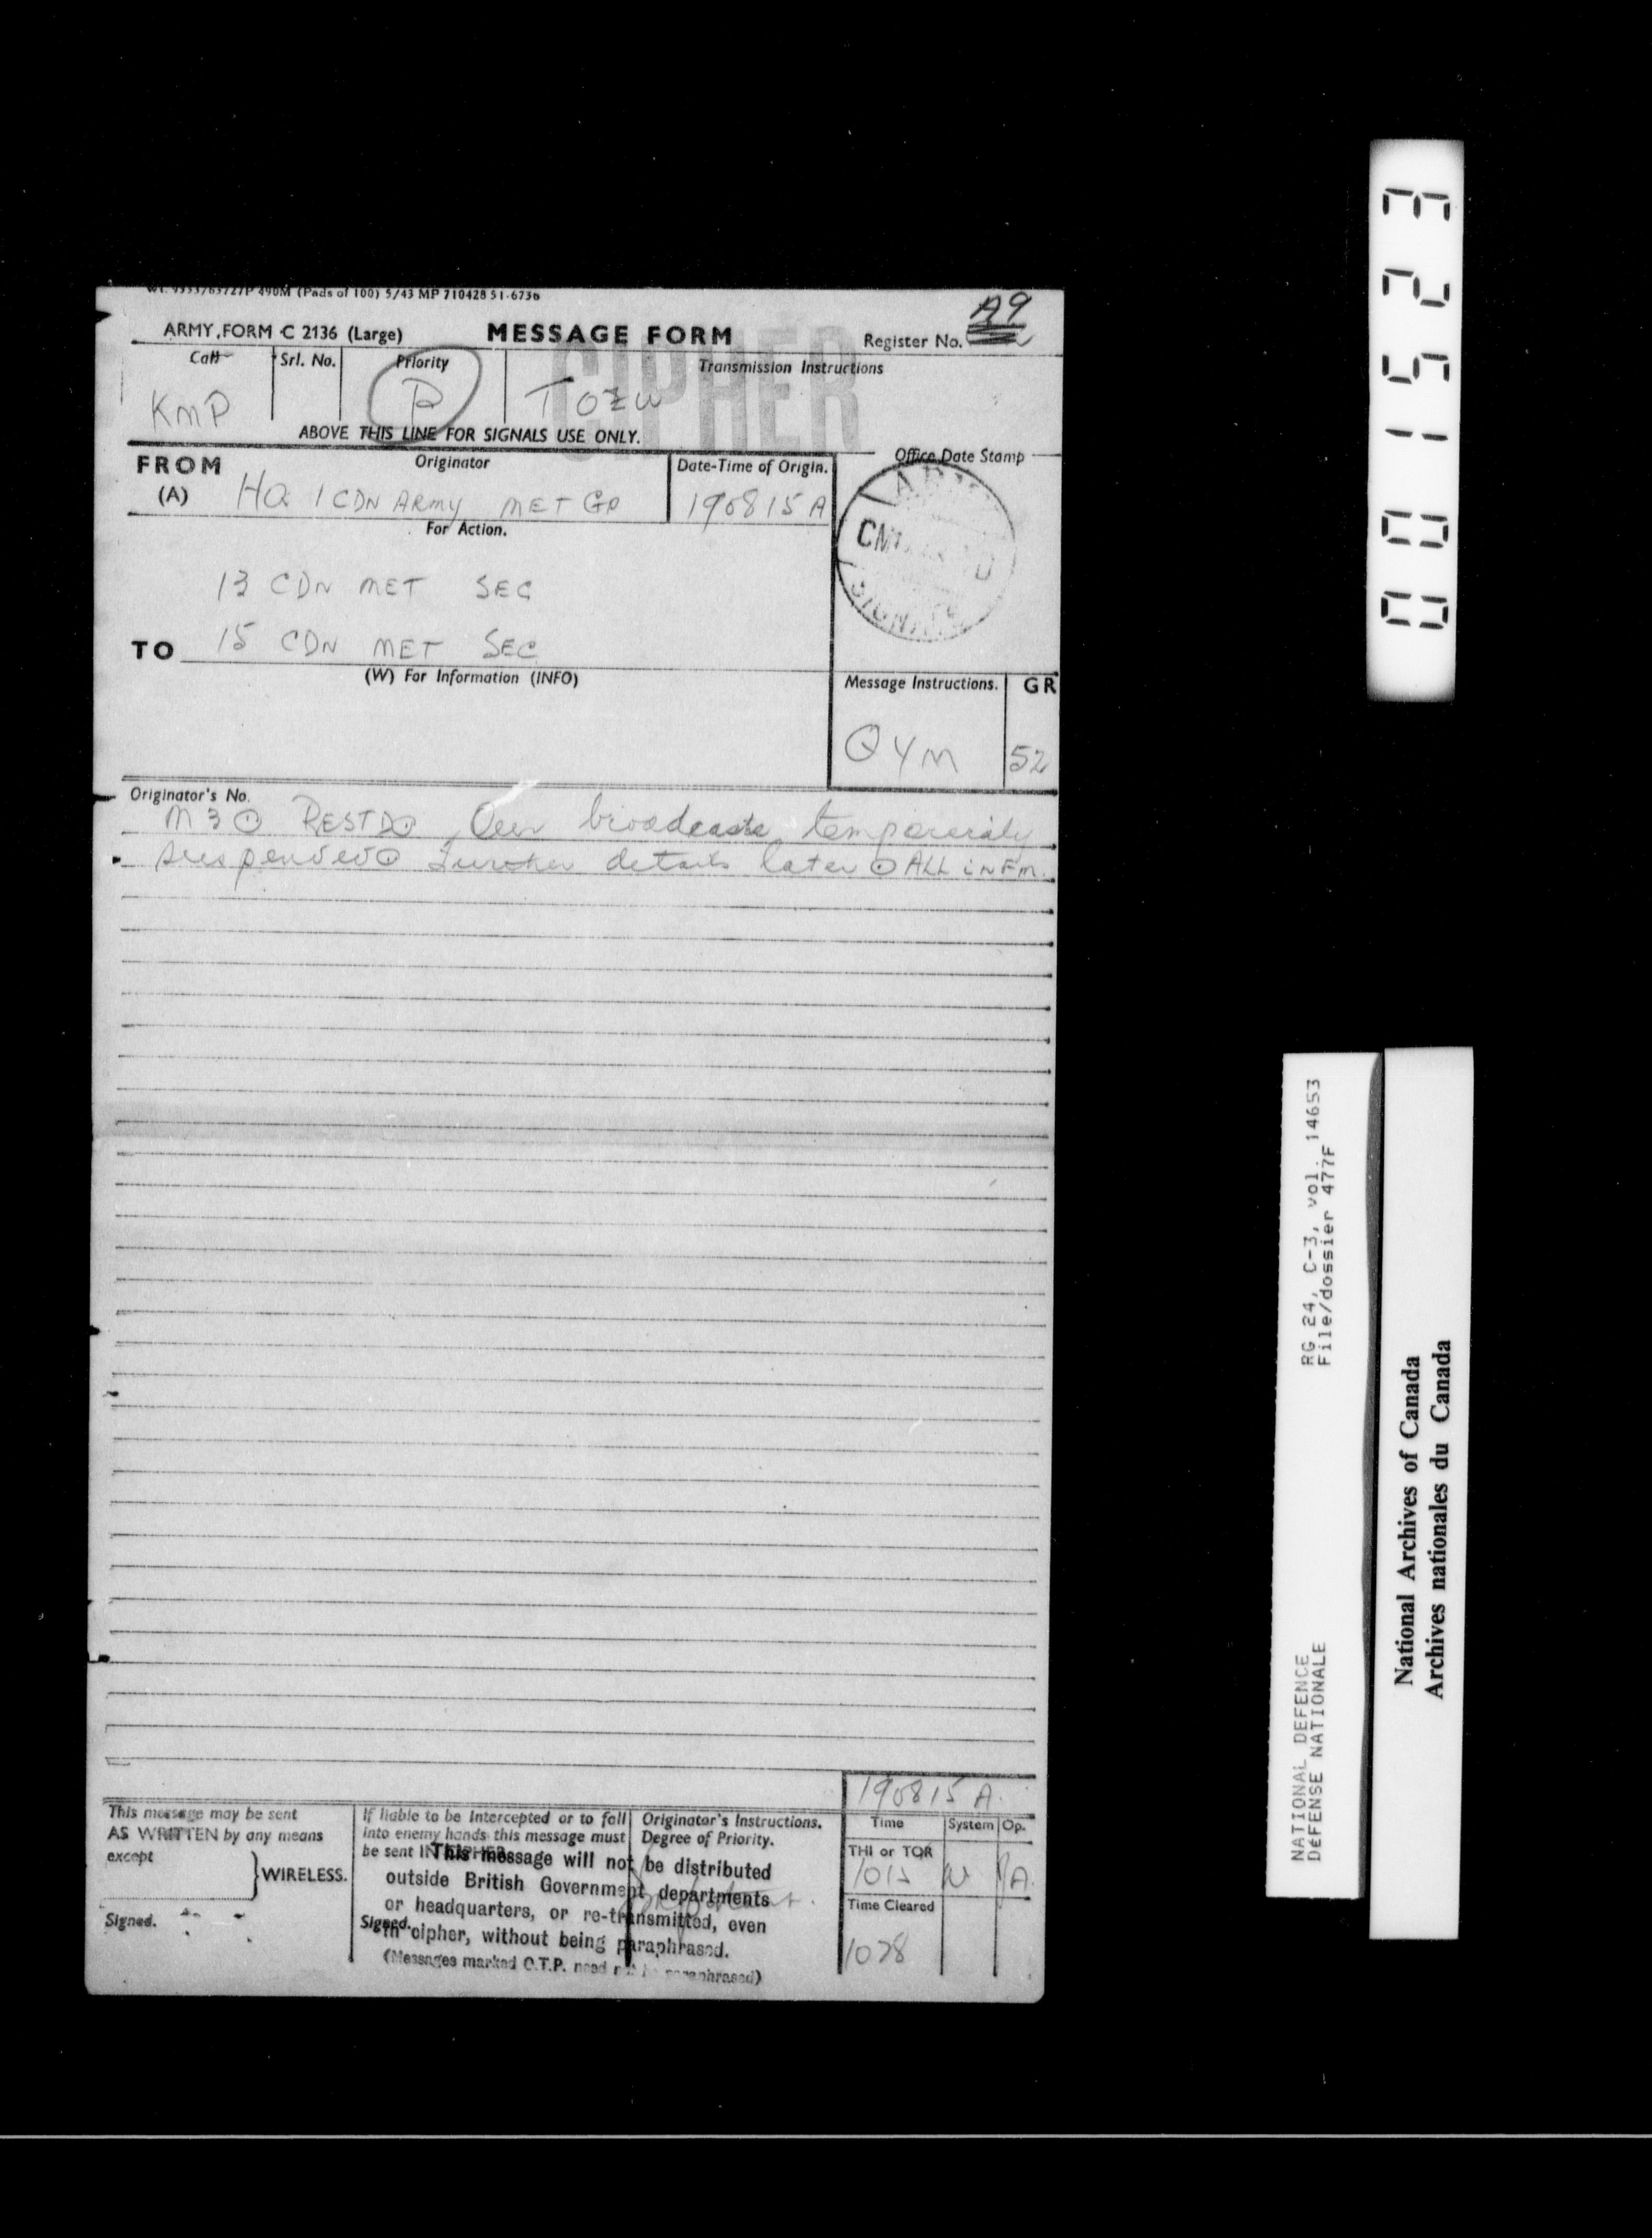 Wt. 9353/65727P 490M (Pads of 100) 5/43 MP 710428 51-6736
ARMY FORM C 2136 (Large) MESSAGE FORM Register No. A9
CIPHER
Call Srl. No. Priority Transmission Instructions
KMP P T OZU
ABOVE THIS LINE FOR SIGNALS USE ONLY.
FROM Originator Date-Time of Origin. Office Date Stamp
(A) HQ 1 CDN ARMY MET GP 190815 A
For Action.
13 CDN MET SEC
TO 15 CDN MET SEC
(W) For Information (INFO)
Message Instructions. GR
QYM 52
Originator's No.
M3 ⊙ RESTD ⊙ Our broadcasts temporarily
suspended ⊙ further details later ⊙ ALL INFM.
190815 A.
This message may be sent
AS WRITTEN by any means
except
WIRELESS.
Signed.
If liable to be intercepted or to fall
into enemy hands this message must
be sent IN CIPHER
Signed.
Originator's Instructions.
Degree of Priority.
Important.
This message will not be distributed
outside British Government departments
or headquarters, or re-transmitted, even
in cipher, without being paraphrased.
(Messages marked O.T.P. need not be paraphrased)
Time System Op.
THI or TOR
1015 W
Time Cleared
1028
001523
NATIONAL DEFENCE RG 24, C-3, vol. 14653
DéFENSE NATIONALE File/dossier 477F
National Archives of Canada
Archives nationales du Canada